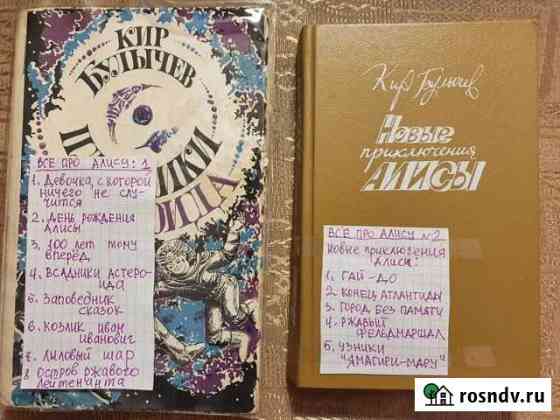 КИР
БУЛЫЧЕВ
П ИКИ
ОИДА
ВСЕ ПРО АЛИСУ: 1
1. Девочка, с которой
ничего не слу-
чится
2. День рождения
Алисы
3. 100 лет тому
вперёд
4. Всадники астеро-
ида
5. Заповедник
сказок
6. Козлик иван
иванович
7. Лиловый шар
8 остров ржавого
лейтенанта
Кир Булычев
Новые
приключения
АЛИСЫ
ВСЕ ПРО АЛИСУ №2
Новые приключения
Алисы:
1. ГАЙ-ДО
2. КОНЕЦ АТЛАНТИДЫ
3. ГОРОД БЕЗ ПАМЯТИ
4. РЖАВЫЙ
ФЕЛЬДМАРШАЛ
5. УЗНИКИ
"ЯМАГИРИ-МАРУ"
rosndv.ru